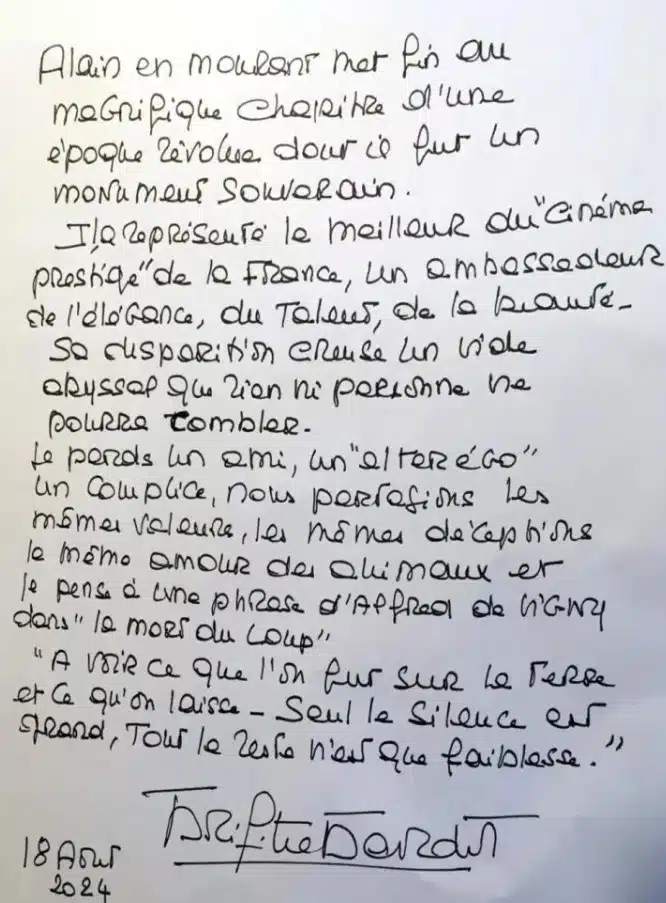 Alain en mourant met fin au
magnifique chapitre d'une
époque révolue dont il fut un
monument souverain.
Il a représenté le meilleur du "cinéma
prestige" de la France, un ambassadeur
de l'élégance, du talent, de la beauté_
Sa disparition creuse un vide
abyssal que rien ni personne ne
pourra combler.
Je perds un ami, un "alter égo"
un complice, nous partagions les
mêmes valeurs, les mêmes déceptions
le même amour des animaux et
je pense à une phrase d'Alfred de Vigny
dans "la mort du Loup"
"A voir ce que l'on fut sur la Terre
et ce qu'on laisse - Seul le silence est
grand, Tout le reste n'est que faiblesse."
Brigitte Bardot
18 Août
2024